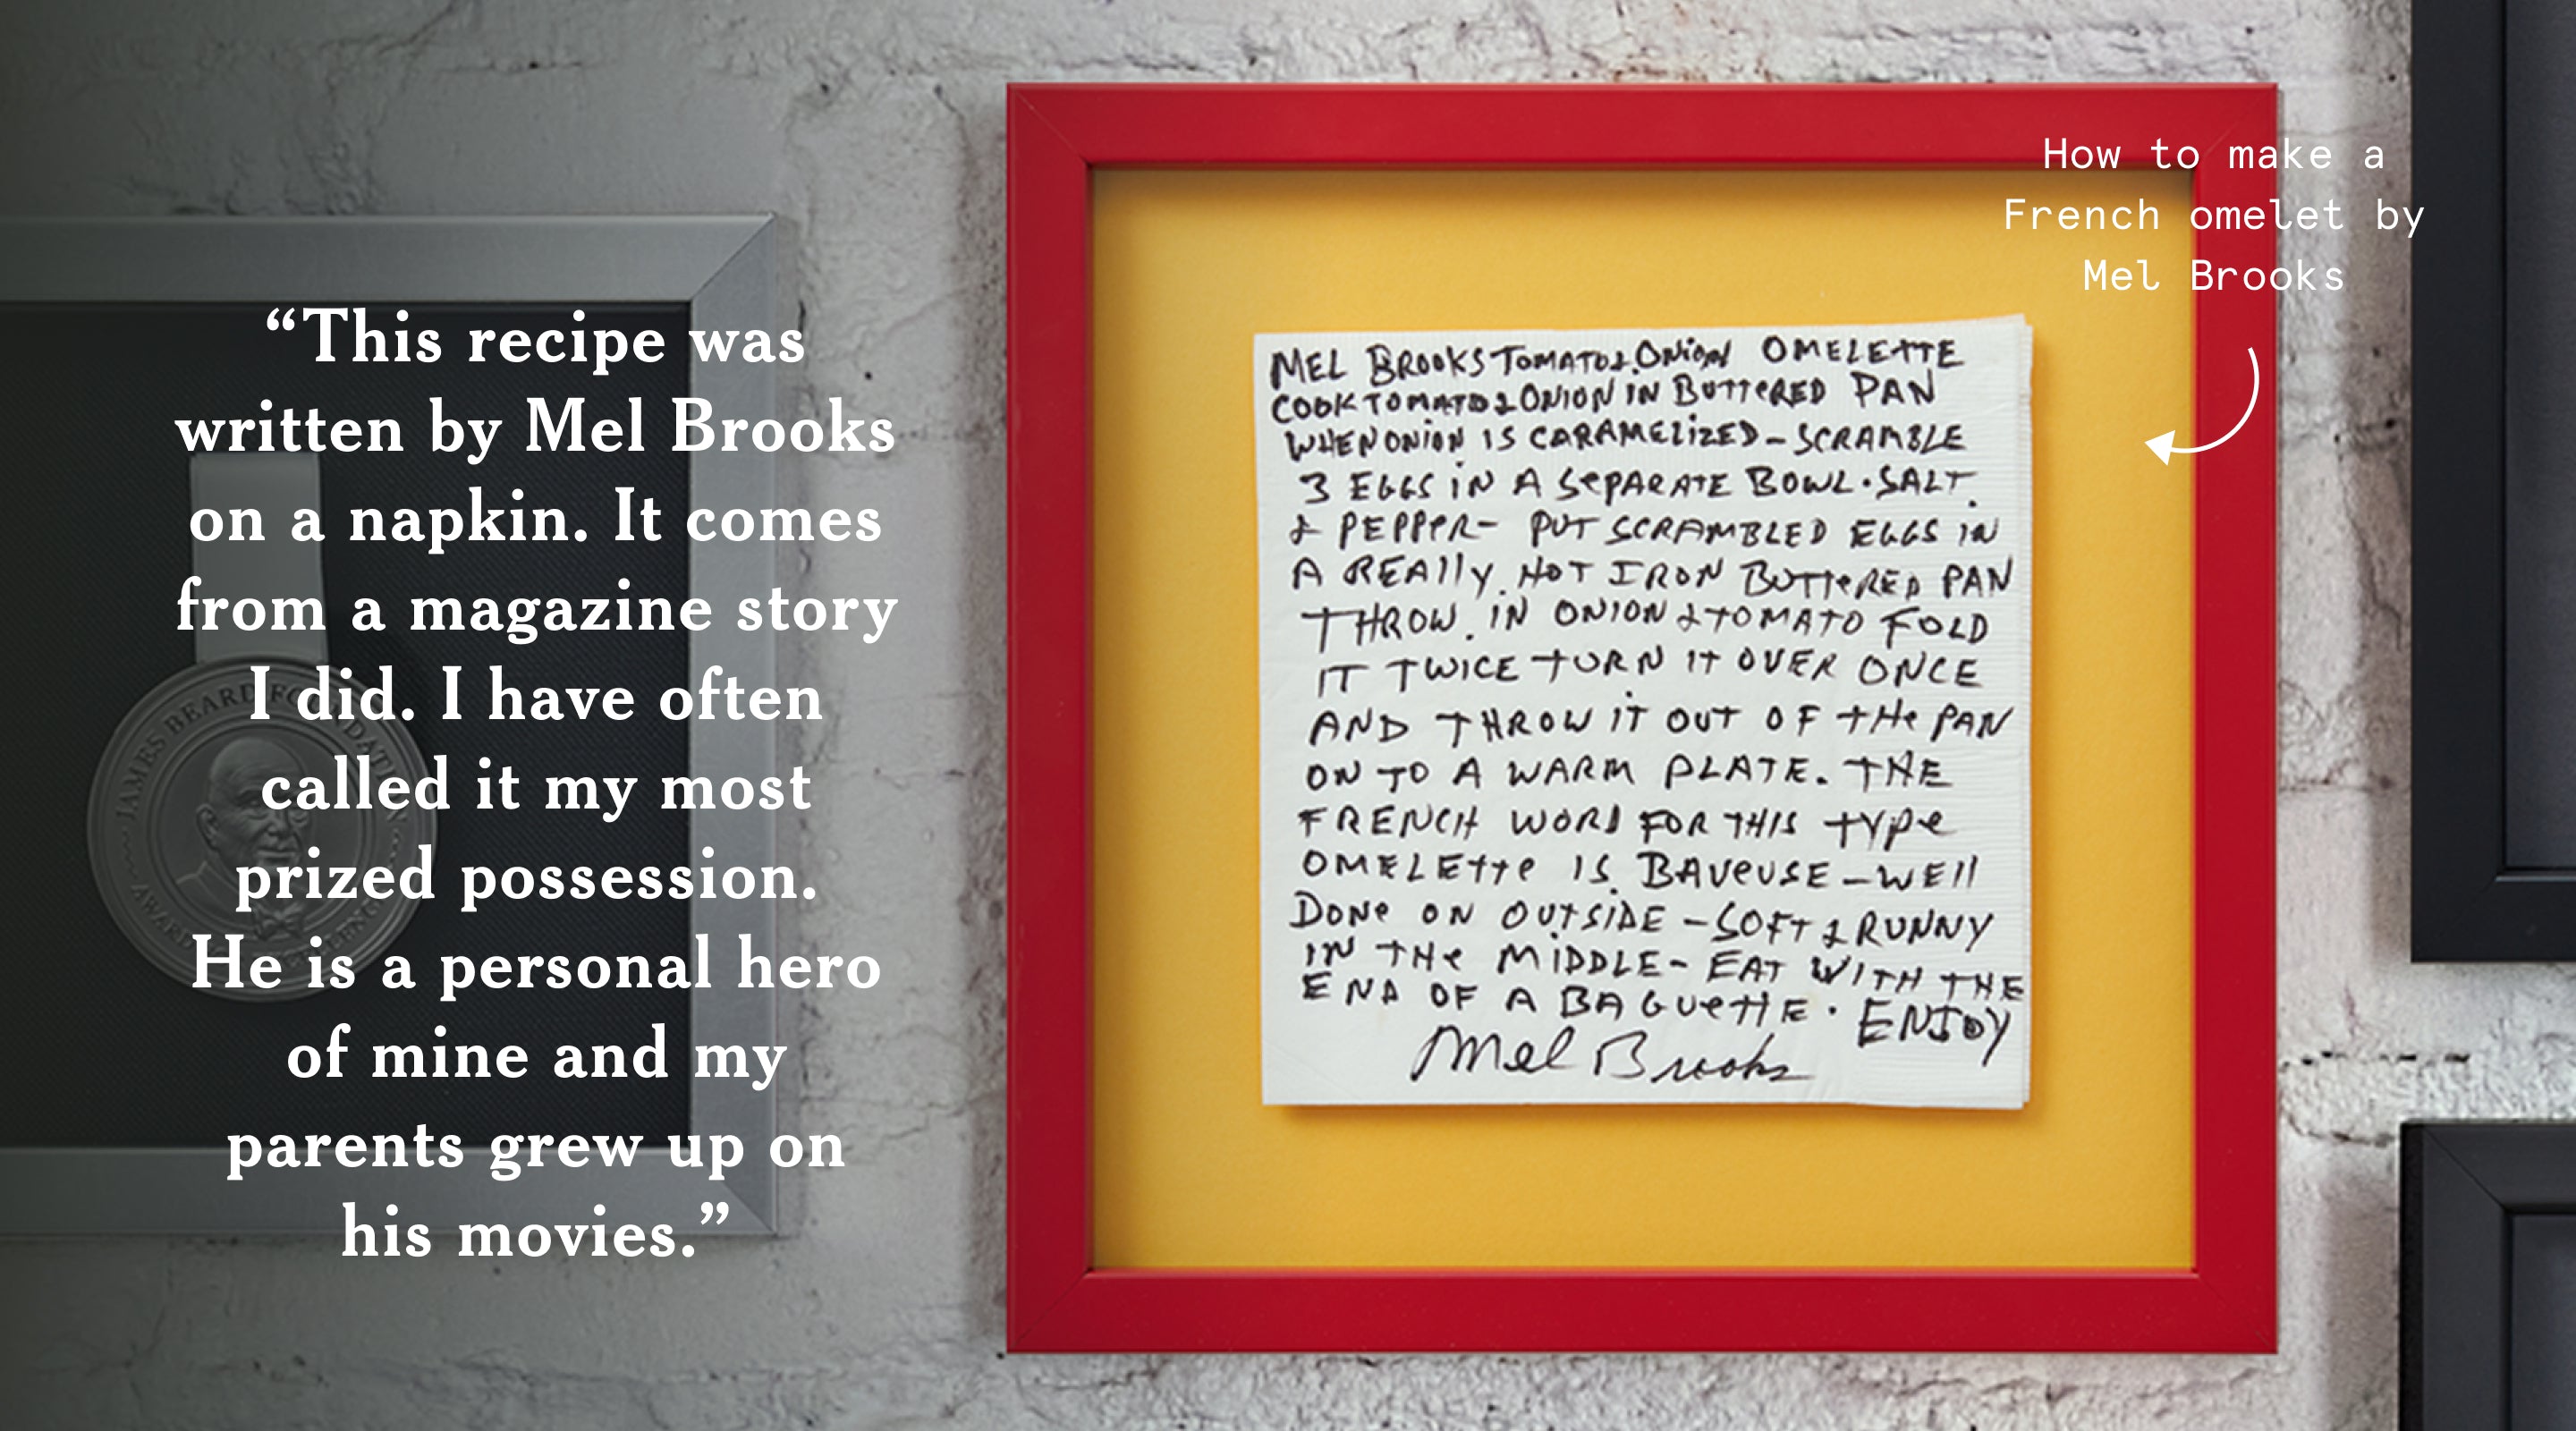 “This recipe was
written by Mel Brooks
on a napkin. It comes
from a magazine story
I did. I have often
called it my most
prized possession.
He is a personal hero
of mine and my
parents grew up on
his movies.”
JAMES BEARD FOUNDATION
How to make a
French omelet by
Mel Brooks
MEL BROOKS TOMATO & ONION OMELETTE
COOK TOMATO & ONION IN BUTTERED PAN
WHEN ONION IS CARAMELIZED – SCRAMBLE
3 EGGS IN A SEPARATE BOWL · SALT
& PEPPER – PUT SCRAMBLED EGGS IN
A REALLY HOT IRON BUTTERED PAN
THROW IN ONION & TOMATO FOLD
IT TWICE TURN IT OVER ONCE
AND THROW IT OUT OF THE PAN
ON TO A WARM PLATE. THE
FRENCH WORD FOR THIS TYPE
OMELETTE IS BAVEUSE – WELL
DONE ON OUTSIDE – SOFT & RUNNY
IN THE MIDDLE – EAT WITH THE
END OF A BAGUETTE · ENJOY
Mel Brooks